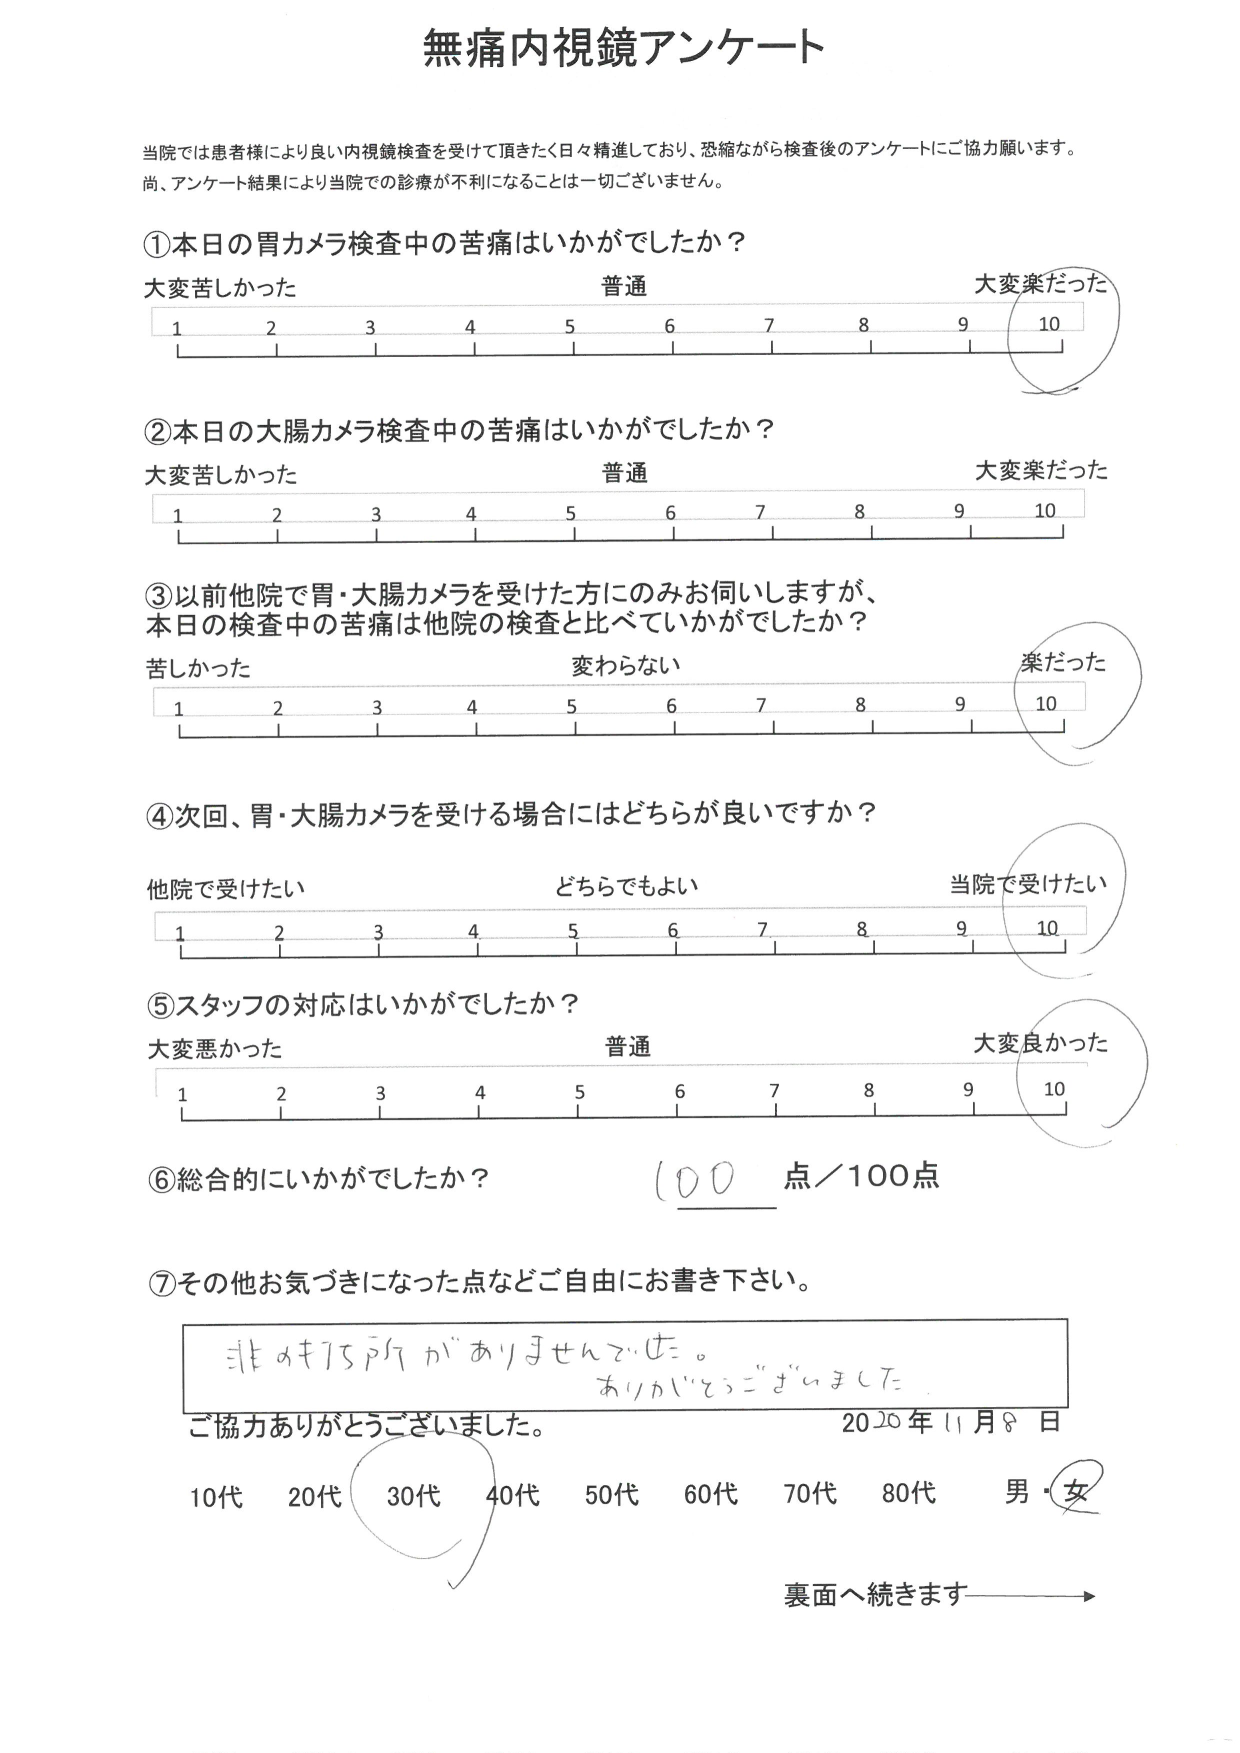 無痛内視鏡アンケート
当院では患者様により良い内視鏡検査を受けて頂きたく日々精進しており、恐縮ながら検査後のアンケートにご協力願います。
尚、アンケート結果により当院での診療が不利になることは一切ございません。
①本日の胃カメラ検査中の苦痛はいかがでしたか？
大変苦しかった 普通 大変楽だった
1 2 3 4 5 6 7 8 9 10
②本日の大腸カメラ検査中の苦痛はいかがでしたか？
大変苦しかった 普通 大変楽だった
1 2 3 4 5 6 7 8 9 10
③以前他院で胃・大腸カメラを受けた方にのみお伺いしますが、
本日の検査中の苦痛は他院の検査と比べていかがでしたか？
苦しかった 変わらない 楽だった
1 2 3 4 5 6 7 8 9 10
④次回、胃・大腸カメラを受ける場合にはどちらが良いですか？
他院で受けたい どちらでもよい 当院で受けたい
1 2 3 4 5 6 7 8 9 10
⑤スタッフの対応はいかがでしたか？
大変悪かった 普通 大変良かった
1 2 3 4 5 6 7 8 9 10
⑥総合的にいかがでしたか？ 100 点／100点
⑦その他お気づきになった点などご自由にお書き下さい。
非の打ち所がありませんでした。
ありがとうございました
ご協力ありがとうございました。 2020年11月8日
10代 20代 30代 40代 50代 60代 70代 80代 男・女
裏面へ続きます